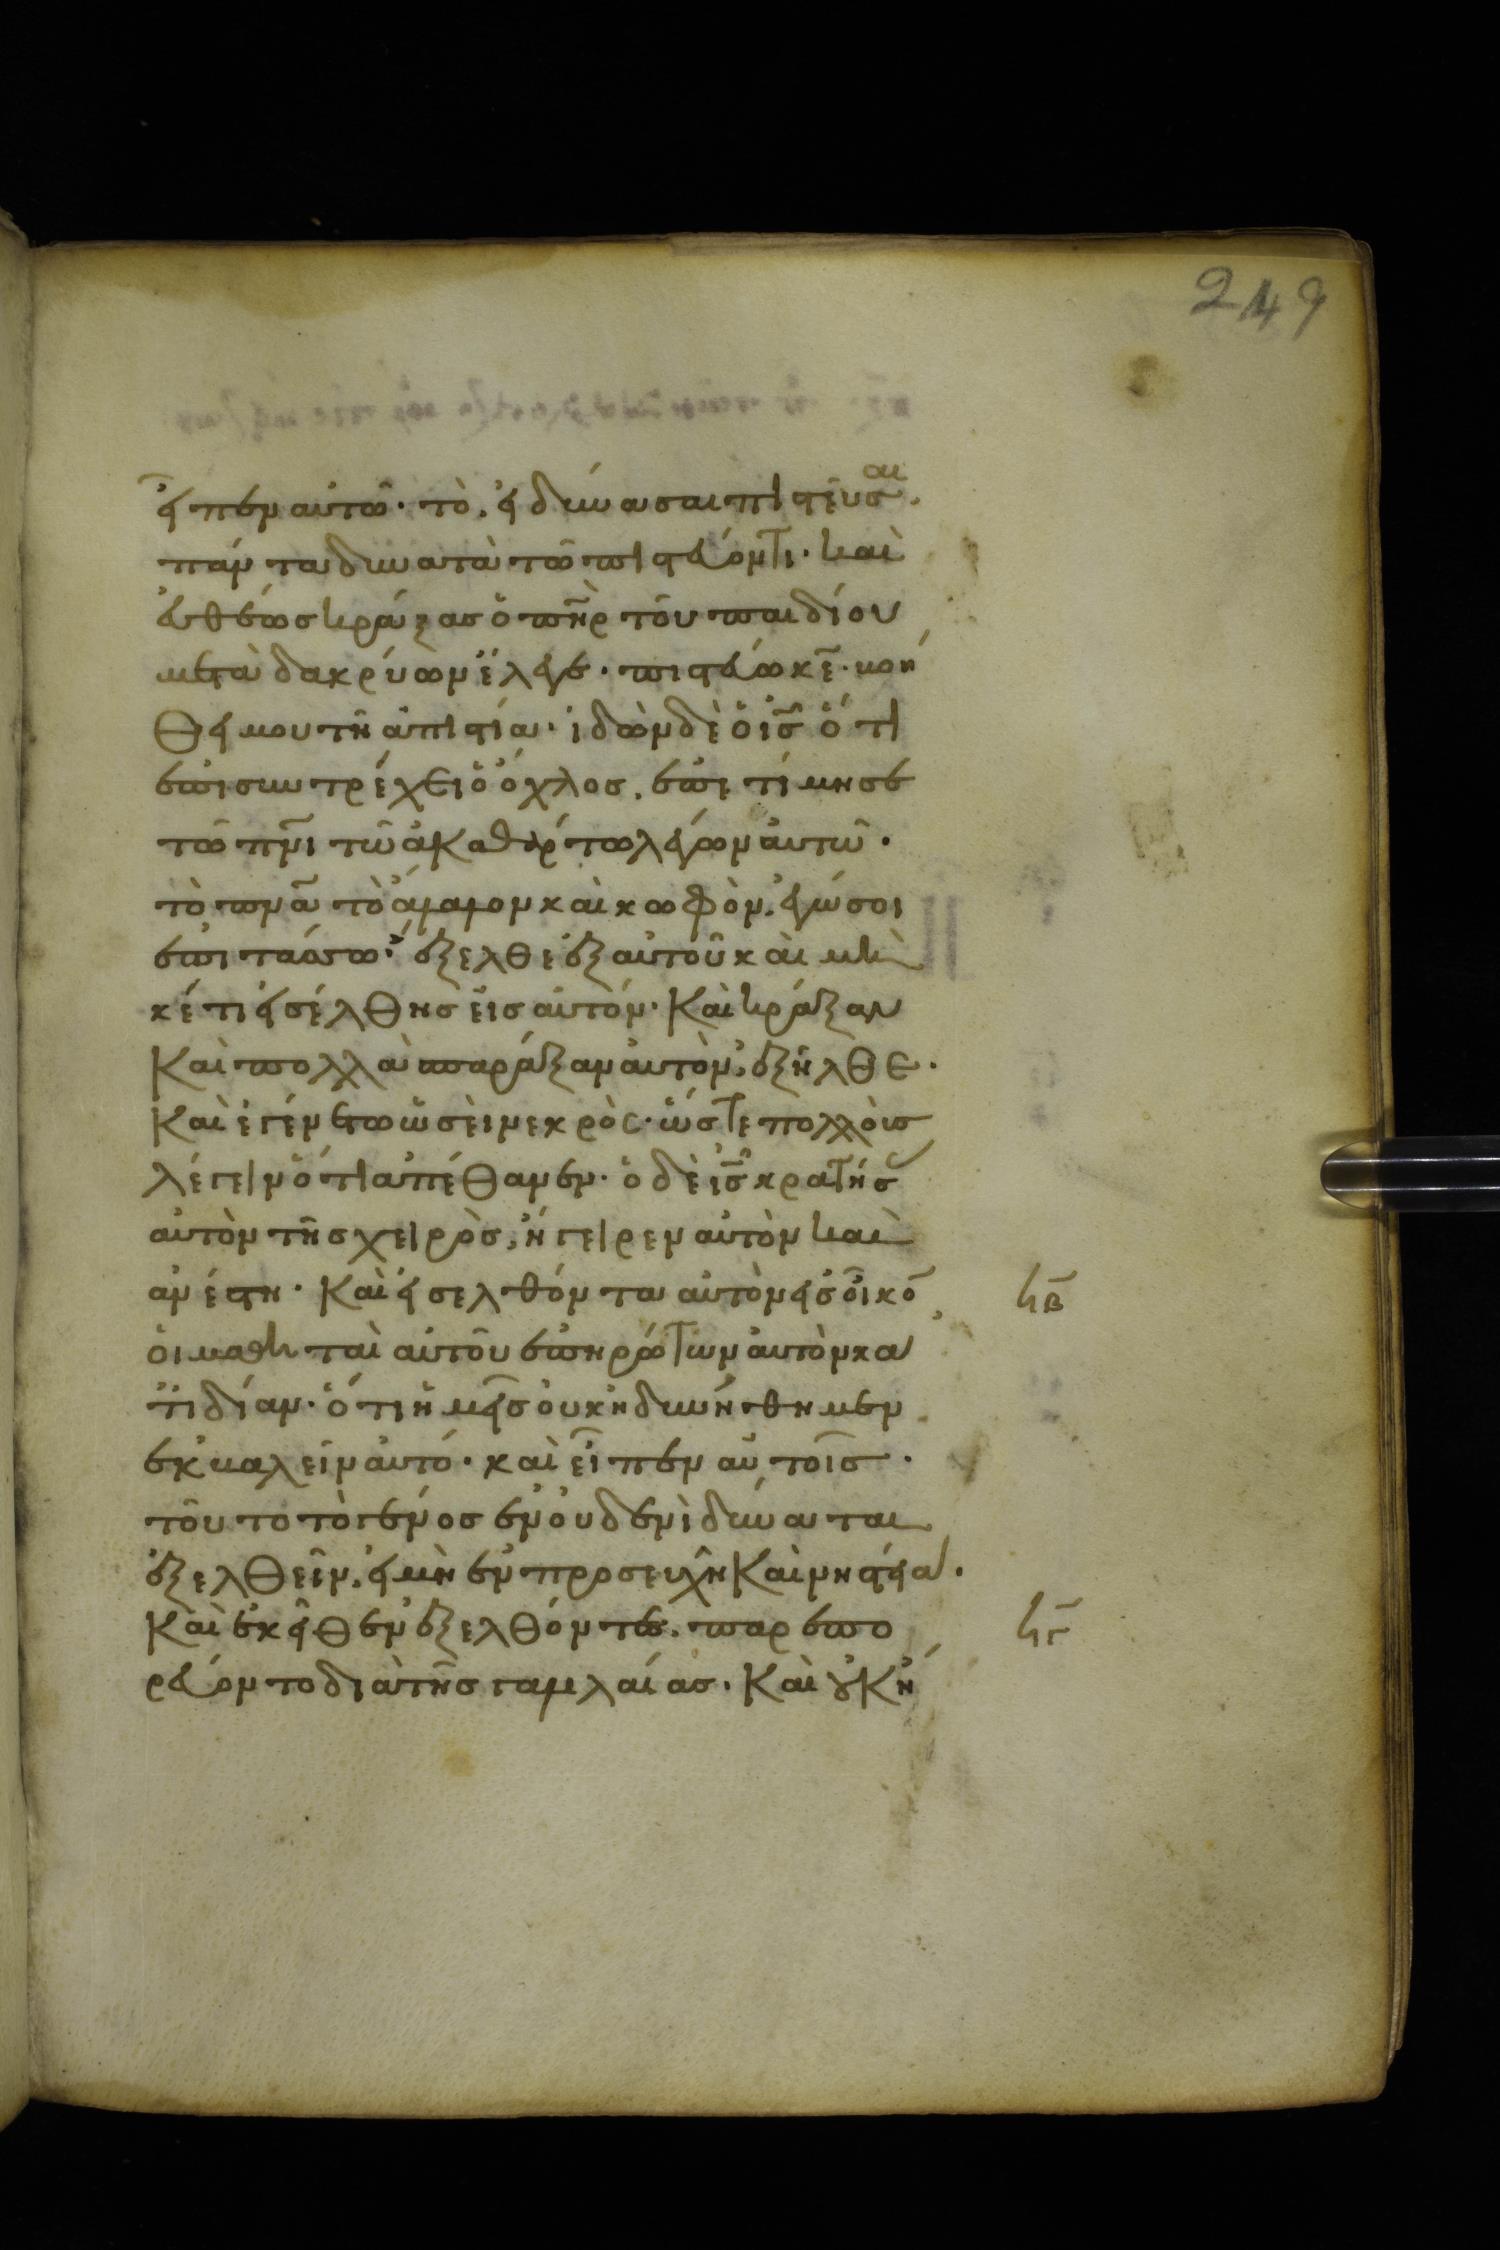 249
εἶπεν αὐτῶ· τὸ, εἰ δύνασαι πιστεῦσαι.
πάντα δυνατὰ τῶ πιστεύοντι· καὶ
εὐθέως κράξας ὁ πηρ τοῦ παιδίου
μετὰ δακρύων ἔλεγε· πιστεύω κε· βοή
θει μου τῆ ἀπιστία· ἰδὼν δὲ ὁ ις ὅτι
ἐπισυντρέχει ὁ ὄχλος, ἐπιτίμησε
τῶ πνι τῶ ἀκαθάρτω λέγων αὐτῶ·
τὸ πνα τὸ ἄλαλον καὶ κωφὸν, ἐγώ σοι
ἐπιτάσσω· ἔξελθε ἐξ αὐτοῦ καὶ μη
κέτι εἰσέλθης εἰς αὐτόν· Καὶ κράξαν
Καὶ πολλὰ σπαράξαν αὐτὸν, ἐξῆλθε·
Καὶ ἐγένετο ὡσεὶ νεκρὸς· ὥστε πολλοὺς
λέγειν ὅτι ἀπέθανεν· ὁ δὲ ις κρατήσας
αὐτὸν τῆς χειρὸς, ἤγειρεν αὐτὸν καὶ
ἀνέστη· Καὶ εἰσελθόντα αὐτὸν εἰς οἶκο
οἱ μαθηταὶ αὐτοῦ ἐπηρώτων αὐτὸν κα
τιδίαν· ὅτι ἡμεῖς οὐκ ἠδυνήθημεν
ἐκβαλεῖν αὐτό· καὶ εἶπεν αὐτοῖς·
τοῦτο τὸ γένος ἐν οὐδενὶ δύναται
ἐξελθεῖν, εἰ μὴ ἐν προσευχῆ Καὶ νηστεία·
Καὶ ἐκεῖθεν ἐξελθόντες, παρεπο
ρεύοντο διὰ τῆς γαλιλαίας· Καὶ οὐκ ἤ
ϟβ
ϟγ